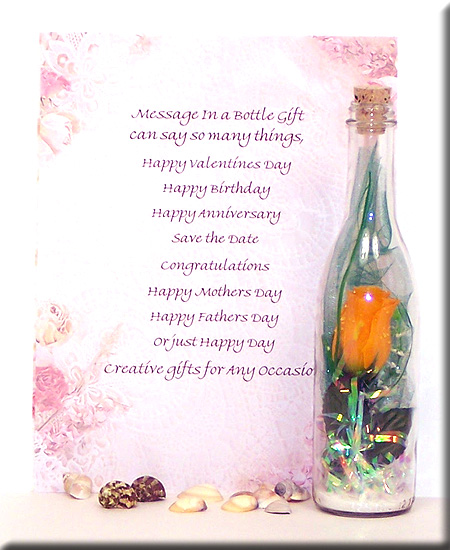 Message In a Bottle Gift
can say so many things,
Happy Valentines Day
Happy Birthday
Happy Anniversary
Save the Date
Congratulations
Happy Mothers Day
Happy Fathers Day
Or just Happy Day
Creative gifts for Any Occasio